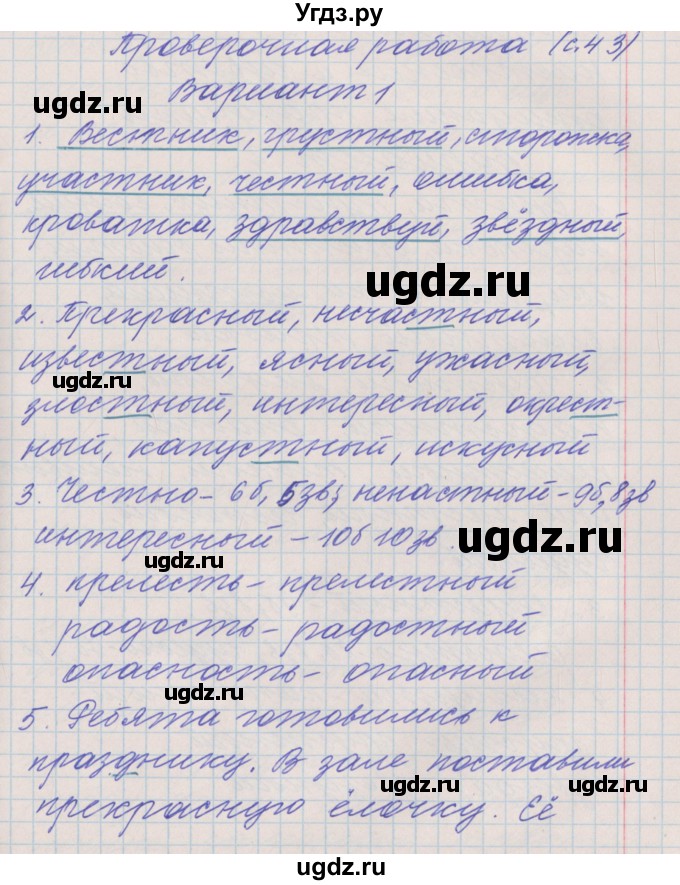 Угдз.ру
Проверочная работа (с.43)
Вариант 1
ugdz.ru
1. Вестник, грустный, сторожка,
участник, честный, ошибка,
кроватка, здравствуй, звёздный,
гибкий.
ugdz.ru
2. Прекрасный, несчастный,
известный, ясный, ужасный,
ugdz.ru
злостный, интересный, окрест-
ный, капустный, искусный
3. Честно - 6б, 5зв; ненастный - 9б, 8зв
интересный - 10б 10зв.
ugdz.ru
4. прелесть - прелестный
радость - радостный
опасность - опасный
ugdz.ru
5. Ребята готовились к
празднику. В зале поставили
ugdz.ru
прекрасную ёлочку. Её
ugdz.ru